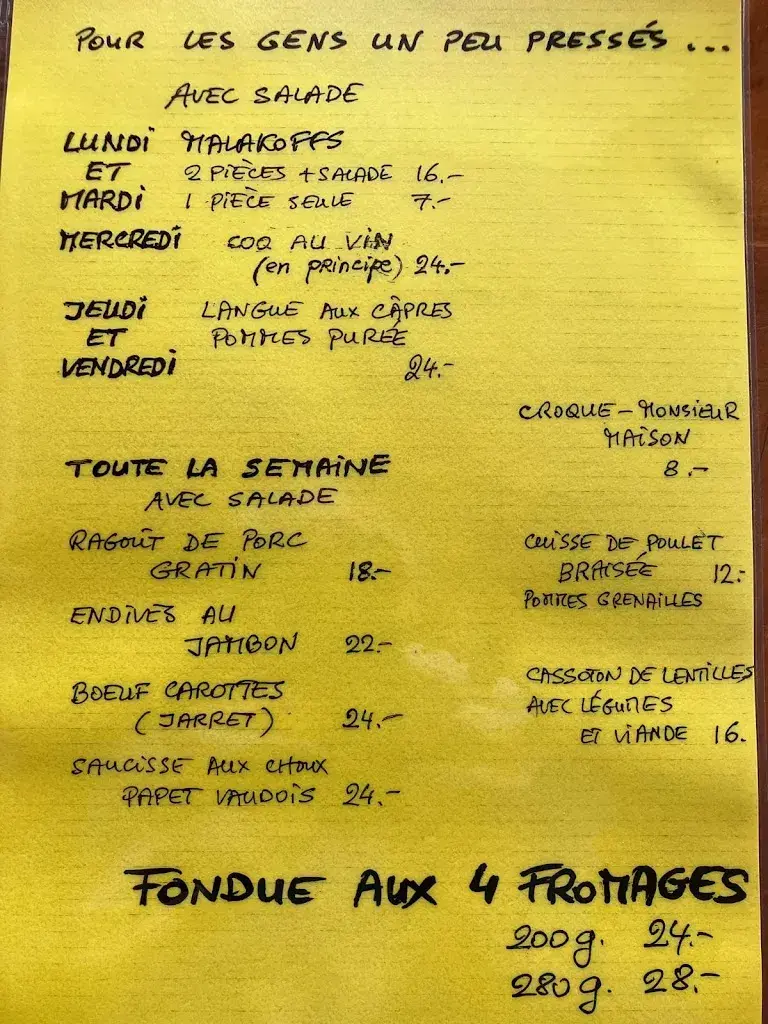 POUR LES GENS UN PEU PRESSÉS ...
AVEC SALADE
LUNDI MALAKOFFS
ET 2 PIÈCES + SALADE 16.-
MARDI 1 PIÈCE SEULE 7.-
MERCREDI COQ AU VIN
(en principe) 24.-
JEUDI LANGUE AUX CÂPRES
ET POMMES PURÉE
VENDREDI 24.-
CROQUE-MONSIEUR
MAISON
8.-
TOUTE LA SEMAINE
AVEC SALADE
RAGOÛT DE PORC
GRATIN 18.-
ENDIVES AU
JAMBON 22.-
BOEUF CAROTTES
(JARRET) 24.-
SAUCISSE AUX CHOUX
PAPET VAUDOIS 24.-
CUISSE DE POULET
BRAISÉE 12.-
POMMES GRENAILLES
CASSOTON DE LENTILLES
AVEC LÉGUMES
ET VIANDE 16.
FONDUE AUX 4 FROMAGES
200g. 24.-
280g. 28.-